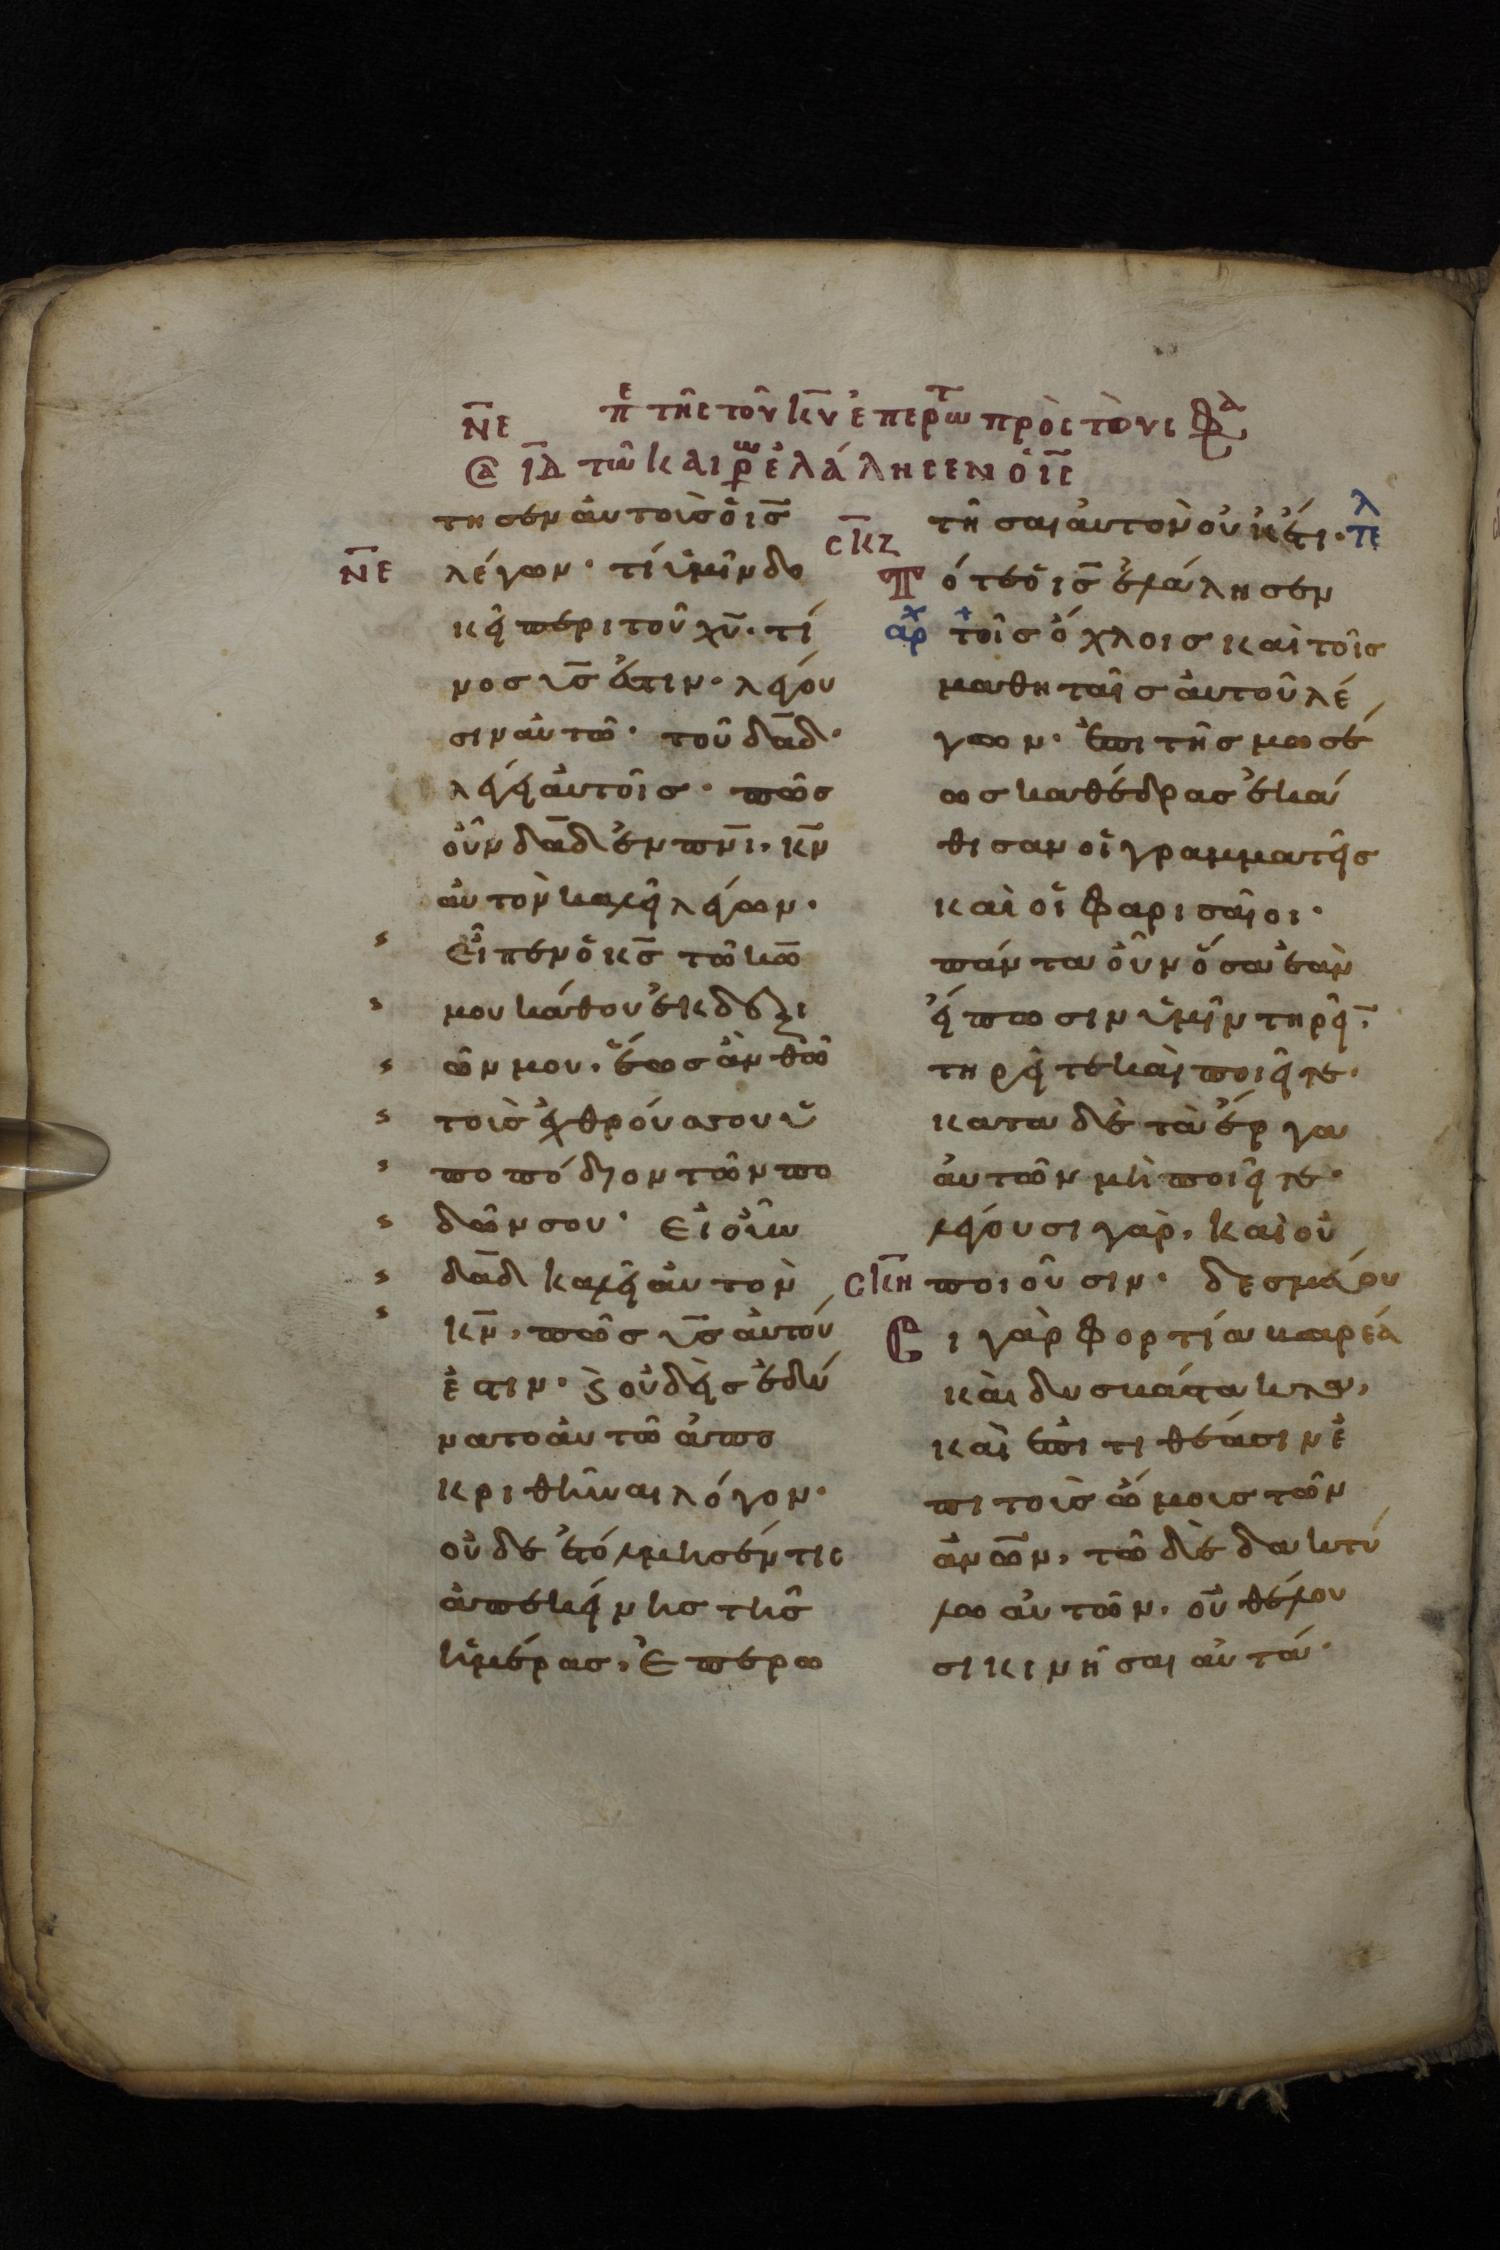 ΝΕ πε τῆς τοῦ κυ ἐπερωτ πρὸς τὸυς Φαλ
Σα ΙΔ τῶ καιρῶ ἐλάλησεν ὁ ις
τησεν ἀυτοὺσ ὁ ισ
ΝΕ λέγων· τί ὑμῖν δο
κεῖ περι τοῦ χυ· τί
νοσ υσ ἐστιν· λέγου
σιν αὐτῶ· τοῦ δαδ·
λέγει ἀυτοῖσ· πῶσ
οὖν δαδ ἐν πνι, κν
ἀυτὸν καλεῖ λέγων·
Εἶπεν ὁ κσ τῶ κω
μου κάθου ἐκ δεξι
ῶν μου, ἕωσ ἂν θῶ
τοὺσ ἐχθρόυσ σου ὑ
ποπόδιον τῶν πο
δῶν σου· Εἰ οὖν
δαδ καλεῖ ἀυτὸν
κν, πῶσ υσ ἀυτόῦ
ἐστιν· ϗ οὐδεὶσ ἐδύ
νατο ἀυτῶ ἀπο
κριθῆναι λόγον·
οὐδὲ ἐτόλμησέν τισ
ἀπεκείνησ τῆσ
ἡμέρασ, Ἐπερω
τῆσαι ἀυτὸν οὐκέτι· ΤΕλ
ΣΚΖ
Τότε ὁ ισ ἐλάλησεν
αρχ τοῖσ ὄχλοισ καὶ τοῖσ
μαθηταῖσ ἀυτοῦ λέ
γων· ἐπι τῆσ μωσέ
ωσ καθέδρασ ἐκά
θισαν οἱ γραμματεῖσ
καὶ οἱ φαρισαῖοι·
πάντα οὖν ὅσα ἐὰν
εἴπωσιν ὑμῖν τηρεῖ,
τηρεῖτε καὶ ποιεῖτε·
κατα δὲ τὰ ἔργα
ἀυτῶν μὴ ποιεῖτε·
λέγουσι γὰρ, καὶ οὐ
ΣΚΗ ποιοῦσιν· δεσμέυου
Σι γὰρ φορτία βαρέα
καὶ δυσβάστακτα,
καὶ ἐπιτιθέασιν ἐ
πι τοὺσ ὤμουσ τῶν
ἀνων, τῶ δὲ δακτύ
λω ἀυτῶν, οὐ θέλου
σι κινῆσαι αὐτά·